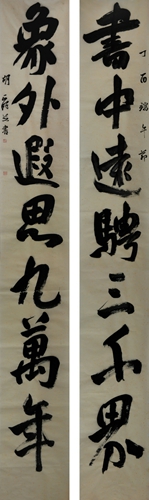 書中遠騁三千界
丁酉端午節
象外遐思九萬年